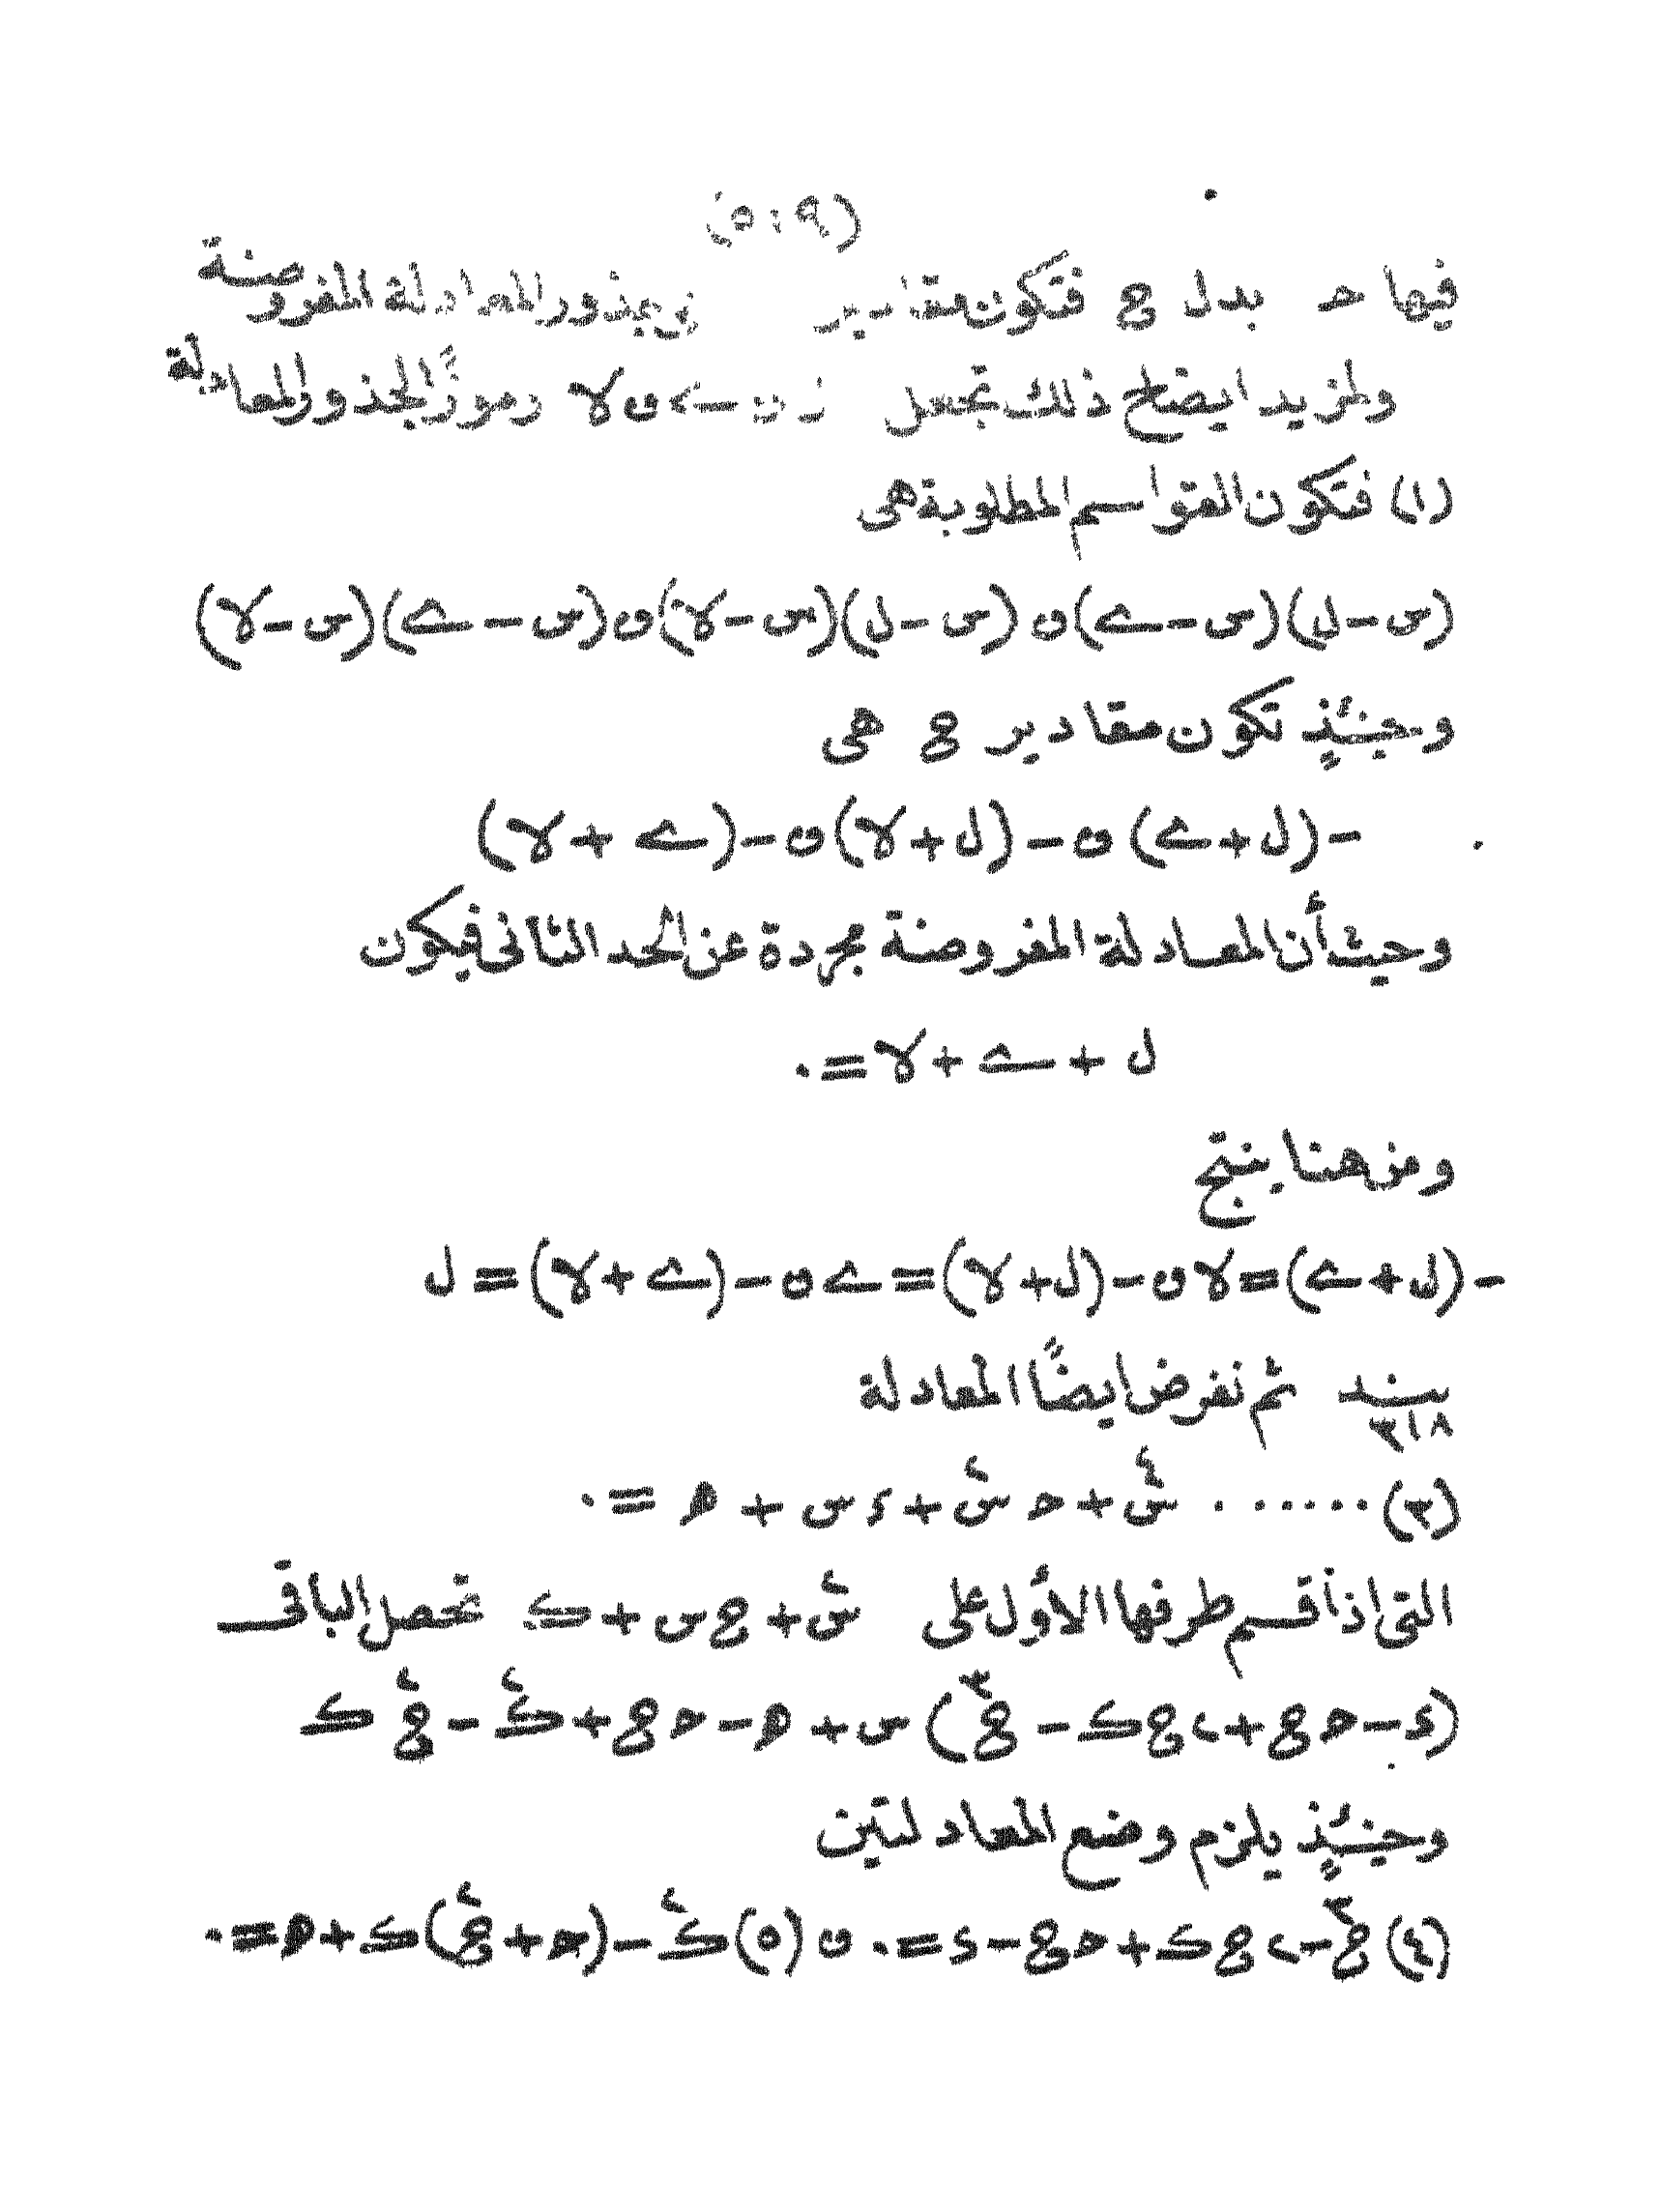 (٥٠٩)
فيها حـ بدل ع فتكون مقادير هى جذور المعادلة المفروضة
ولمزيد ايضاح ذلك نجعل ل و ے و لا رموزًا لجذور المعادلة
(١) فتكون القواسم المطلوبة هى
(س-ل)(س-ے) و (س-ل)(س-لا) و (س-ے)(س-لا)
وحينئذٍ تكون مقادير ع هى
-(ل+ے) و -(ل+لا) و -(ے+لا)
وحيث أن المعادلة المفروضة مجردة عن الحد الثانى فيكون
ل + ے + لا = ٠
ومن هنا ينتج
-(ل+ے)=لا و -(ل+لا)=ے و -(ے+لا)= ل
بند ٣١٨ ثم نفرض ايضًا المعادلة
(٣) ...... س٤ + حـ س٢ + ء س + هـ = ٠
التى اذا قسم طرفها الأول على س٢ + ع س + ك تحصل الباقى
(ء - حـ ع + ٢ ع ك - ع٣) س + هـ - حـ ع + ك٢ - ع٢ ك
وحينئذٍ يلزم وضع المعادلتين
(٤) ع٣ - ٢ ع ك + حـ ع - ء = ٠ و (٥) ك٢ - (حـ + ع٢) ك + هـ = ٠